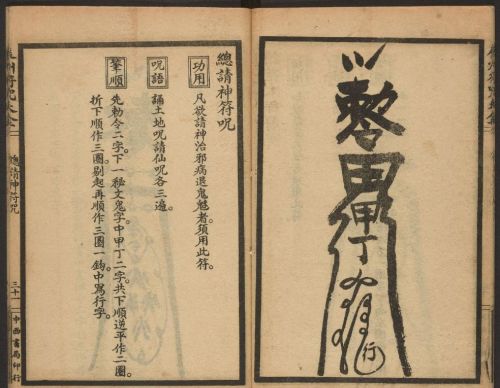 勅令
甲丁
行
總請神符咒
功用
凡欲請神治邪病退鬼魅者。須用此符。
咒語
誦土地咒請仙咒各三遍。
筆順
先勅令二字。下一秘文鬼字。中甲丁二字。共下順逆平作二圈。
折下順作三圈。剔起再順作三圈一鈎。中寫行字。
總請神符咒
三十一
中西書局印行